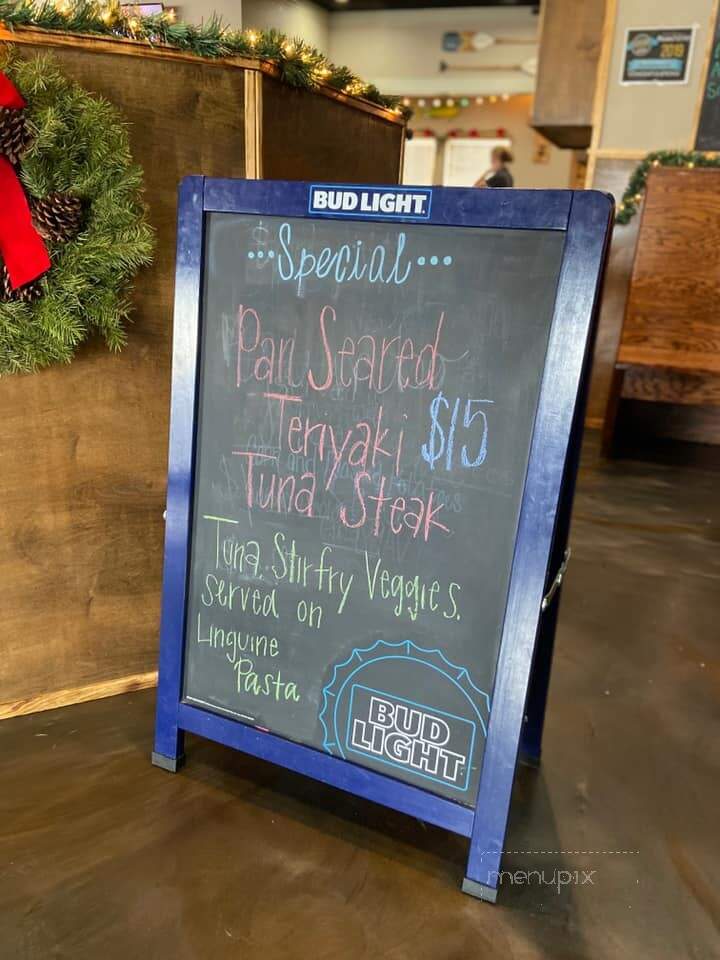 2019
BUD LIGHT
...Special...
Pan Seared
Teriyaki $15
Tuna Steak
Tuna. Stirfry Veggies.
served on
Linguine
Pasta
BUD
LIGHT
menupix